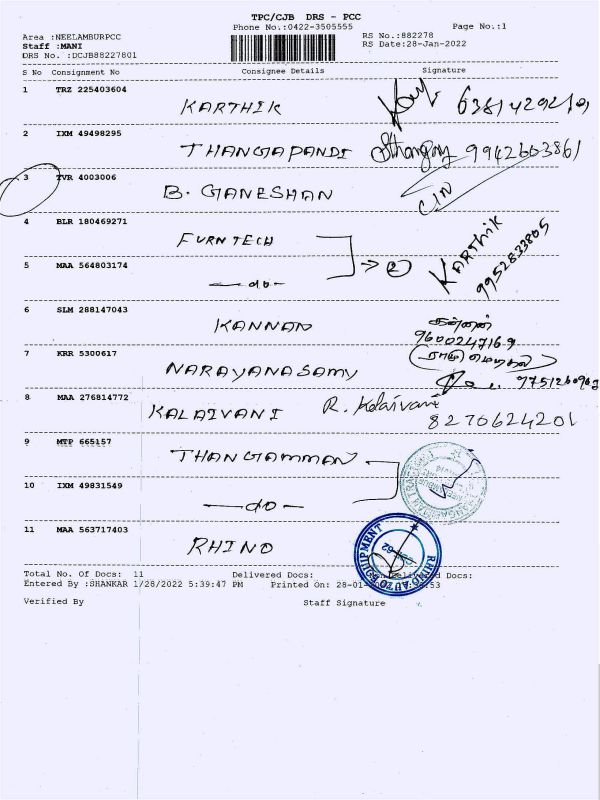 TPC/CJB DRS - PCC
Phone No.:0422-3505555 Page No.:1
Area :NEELAMBURPCC RS No.:882278
Staff :MANI RS Date:28-Jan-2022
DRS No. :DCJB88227801
S No Consignment No Consignee Details Signature
1 TRZ 225403604
KARTHIK
2 IXM 49498295
THANGAPANDI 9942603861
3 TVR 4003006
B. GANESHAN
4 BLR 180469271
FURNTECH KARTHIK
2 9952833805
5 MAA 564803174
-do-
6 SLM 288147043
KANNAN கண்ணன்
9600247169
7 KRR 5300617
NARAYANASAMY
9751260963
8 MAA 276814772
KALAIVANI R. Kalaivani
8270624201
9 MTP 665157
THANGAMMAN
10 IXM 49831549
-do-
11 MAA 563717403
RHINO
RHINO AUTO EQUIPMENT
Total No. Of Docs: 11 Delivered Docs: Docs:
Entered By :SHANKAR 1/28/2022 5:39:47 PM Printed On: 28-01
Verified By Staff Signature